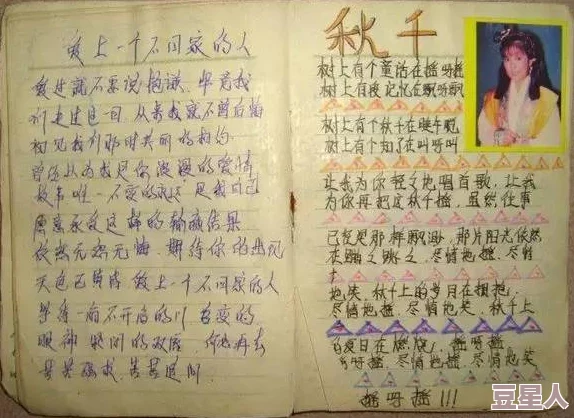 爱上一个不回家的人
爱过就不要说抱歉 毕竟我
们走过这一回 从来我就不曾后悔
初见我们那时共同的相约
曾经以为我是你浪漫的爱情
故事唯一不变的永远 是我自己
愿意承受这样的输赢结果
依然无怨无悔 期待你的出现
天色已黄昏 爱上一个不回家的人
等待一扇不开启的门 善变的
眼神 紧闭的双唇 何必再去
苦苦强求 苦苦追问
秋千
树上有个童话在摇呀摇
树上有段记忆在飘呀飘
树上有个秋千在
树上有个知了在叫呀叫
让我为你轻轻地唱首歌，让我
为你再把这秋千摇，虽然往事
已经是那样飘渺，那片阳光依然
在蹦之跳之、尽情地摇、尽情
地笑、秋千上的岁月在
尽情地摇、尽情地笑、秋千上
夏日在燃烧、摇呀摇
呀摇、尽情地摇、尽情地笑
摇呀摇!!!
豆星人